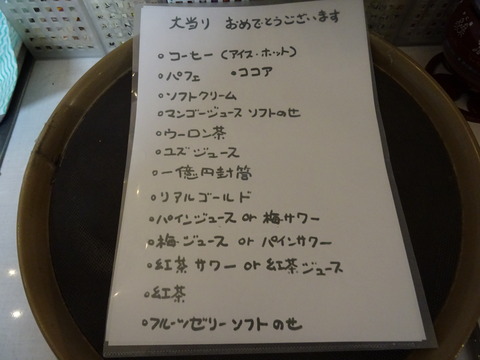 大当り おめでとうございます
○コーヒー (アイス・ホット)
○パフェ ○ココア
○ソフトクリーム
○マンゴージュース ソフトのせ
○ウーロン茶
○ユズジュース
○一億円封筒
○リアルゴールド
○パインジュース or 梅サワー
○梅ジュース or パインサワー
○紅茶サワー or 紅茶ジュース
○紅茶
○フルーツゼリー ソフトのせ